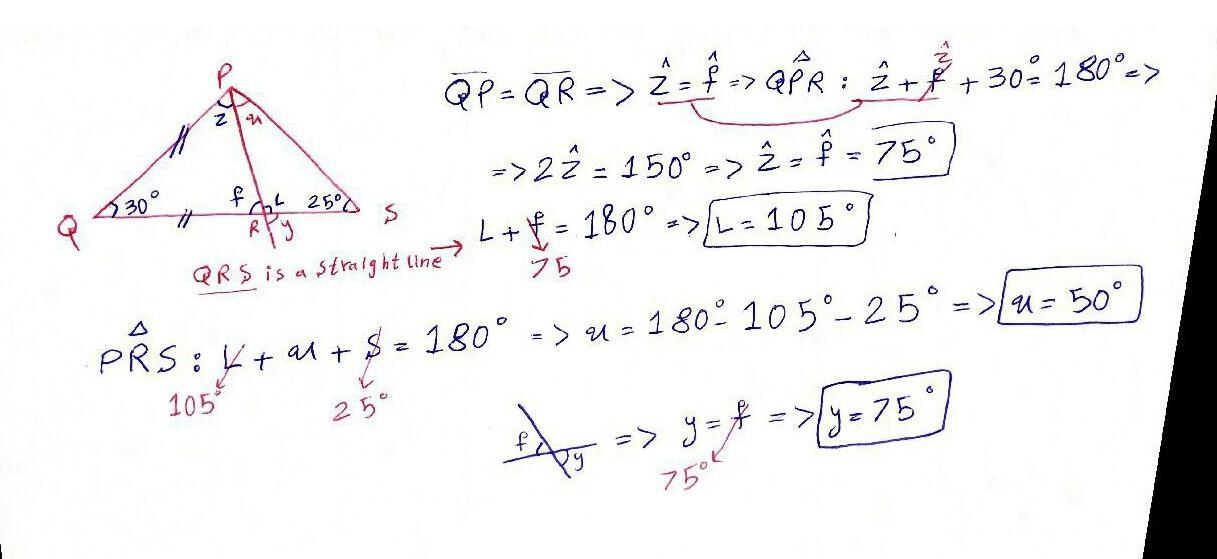 P
Z x
Q 30° f L 25° S
R y
QRS is a straight line →
QP = QR => ẑ = f̂ => QP̂R : ẑ + f̂ ẑ + 30° = 180° =>
=> 2ẑ = 150° => ẑ = f̂ = 75°
L + f = 180° => L = 105°
75
PRS : L + x + S = 180° => x = 180° - 105° - 25° => x = 50°
105° 25°
f y => y = f => y = 75°
75°